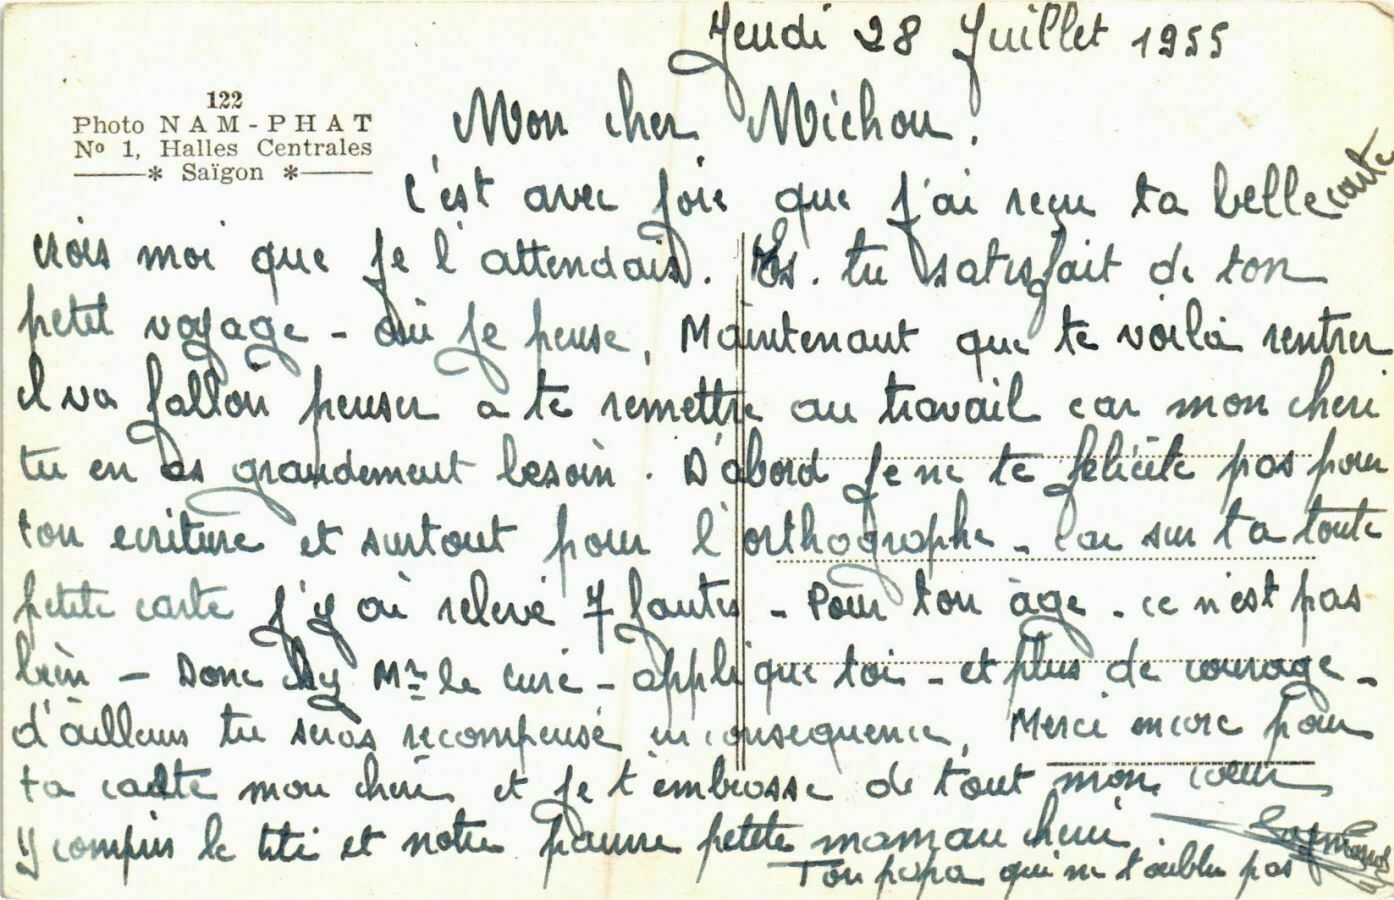 Jeudi 28 Juillet 1955
122
Photo NAM-PHAT
Nº 1, Halles Centrales
* Saïgon *
Mon cher Michou.
C'est avec joie que j'ai reçu ta belle carte
crois moi que je l'attendais. Es. tu satisfait de ton
petit voyage - oui je pense, Maintenant que te voilà rentrer
il va falloir penser a te remettre au travail car mon cheri
tu en as grandement besoin. D'abord je ne te félicite pas pour
ton ecriture et surtout pour l'orthographe - Car sur ta toute
petite carte j'y ai relevé 7 fautes - Pour ton âge - ce n'est pas
bien - Donc Mr le curé - applique toi - et plus de courage -
d'ailleurs tu seras recompensé en consequence, Merci encore pour
ta carte mon cheri et je t'embrasse de tout mon cœur
y compris le titi et notre pauvre petite maman cheri.
Ton papa qui ne t'oublie pas